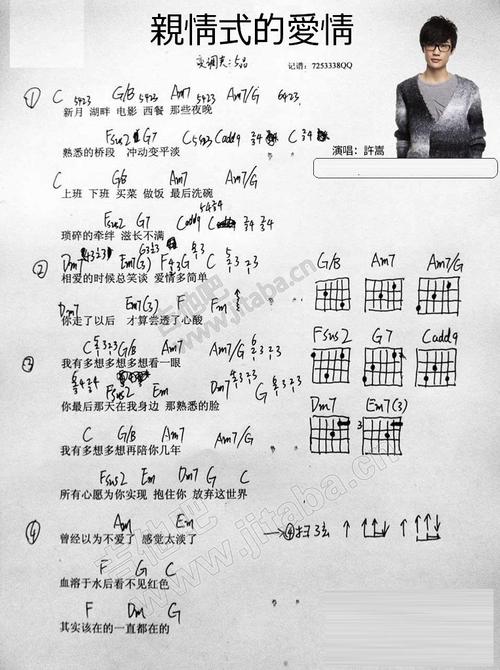 親情式的愛情
变调夹:5品
记谱:7253338QQ
演唱:許嵩
① C 5423 G/B 5423 Am7 5423 Am7/G 6423
新月 湖畔 电影 西餐 那些夜晚
Fsus2 G7 C5423 Cadd9 C
熟悉的桥段 冲动变平淡
C G/B Am7 Am7/G
上班 下班 买菜 做饭 最后洗碗
Fsus2 G7 Cadd9
琐碎的牵绊 滋长不满
② Dm7 Em7(3) F G C
相爱的时候总笑谈 爱情多简单
Dm7 Em7(3) F Fm
你走了以后 才算尝透了心酸
C G/B Am7 Am7/G
我有多想多想多想看一眼
Fsus2 Em Dm7 G
你最后那天在我身边 那熟悉的脸
C G/B Am7 Am7/G
我有多想多想再陪你几年
Fsus2 Em Dm7 G
所有心愿为你实现 抱住你 放弃这世界
④ Am Em
曾经以为不爱了 感觉太淡了
F G C
血溶于水后看不见红色
F Dm G
其实该在的一直都在的
G/B Am7 Am7/G
Fsus2 G7 Cadd9
Dm7 Em7(3)
3
→④扫弦
吉他吧
www.jitaba.cn
吉他吧
www.jitaba.cn